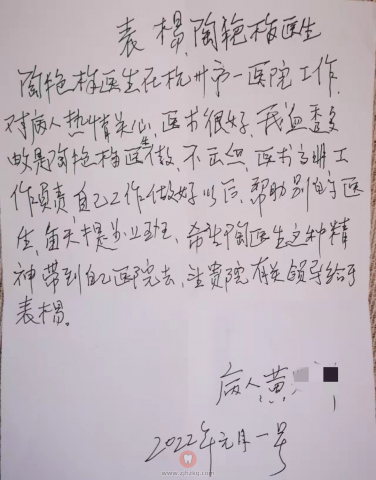 表揚陶艳梅医生
陶艳梅医生在杭州市一医院工作.
对病人热情关心,医术很好,我
都是陶艳梅医生做 不云但,医术高明工
作負責,自己工作做好以后,帮助别的医
生,每天提前上班,希望陶医生这种精
神带到自己医院去,法贵院有关领导给于
表揚。
病人黄
2022年元月一号
www.zjhzkq.com